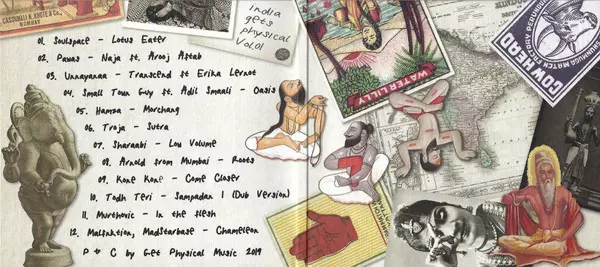 CASSUMALI N. KHOTE & Co.,
BOMBAY
india
gets
physical
Vol.01
01. Soulspace - Lotus Eater
02. Pawas - Naja ft. Arooj Aftab
03. Unnayanaa - Transcend ft Erika Lernot
04. Small Town Guy ft. Adil Smaali - Oasis
05. Hamza - Morchang
06. Troja - Sutra
07. Sharaabi - Low Volume
08. Arnold from Mumbai - Roots
09. Kone Kone - Come Closer
10. Todh Teri - Sampadan 1 (Dub Version)
11. Murthovic - In the flesh
12. Malfnktion, MadStarbase - Chameleon
P + C by Get Physical Music 2019
WATER LILLY
COW HEAD